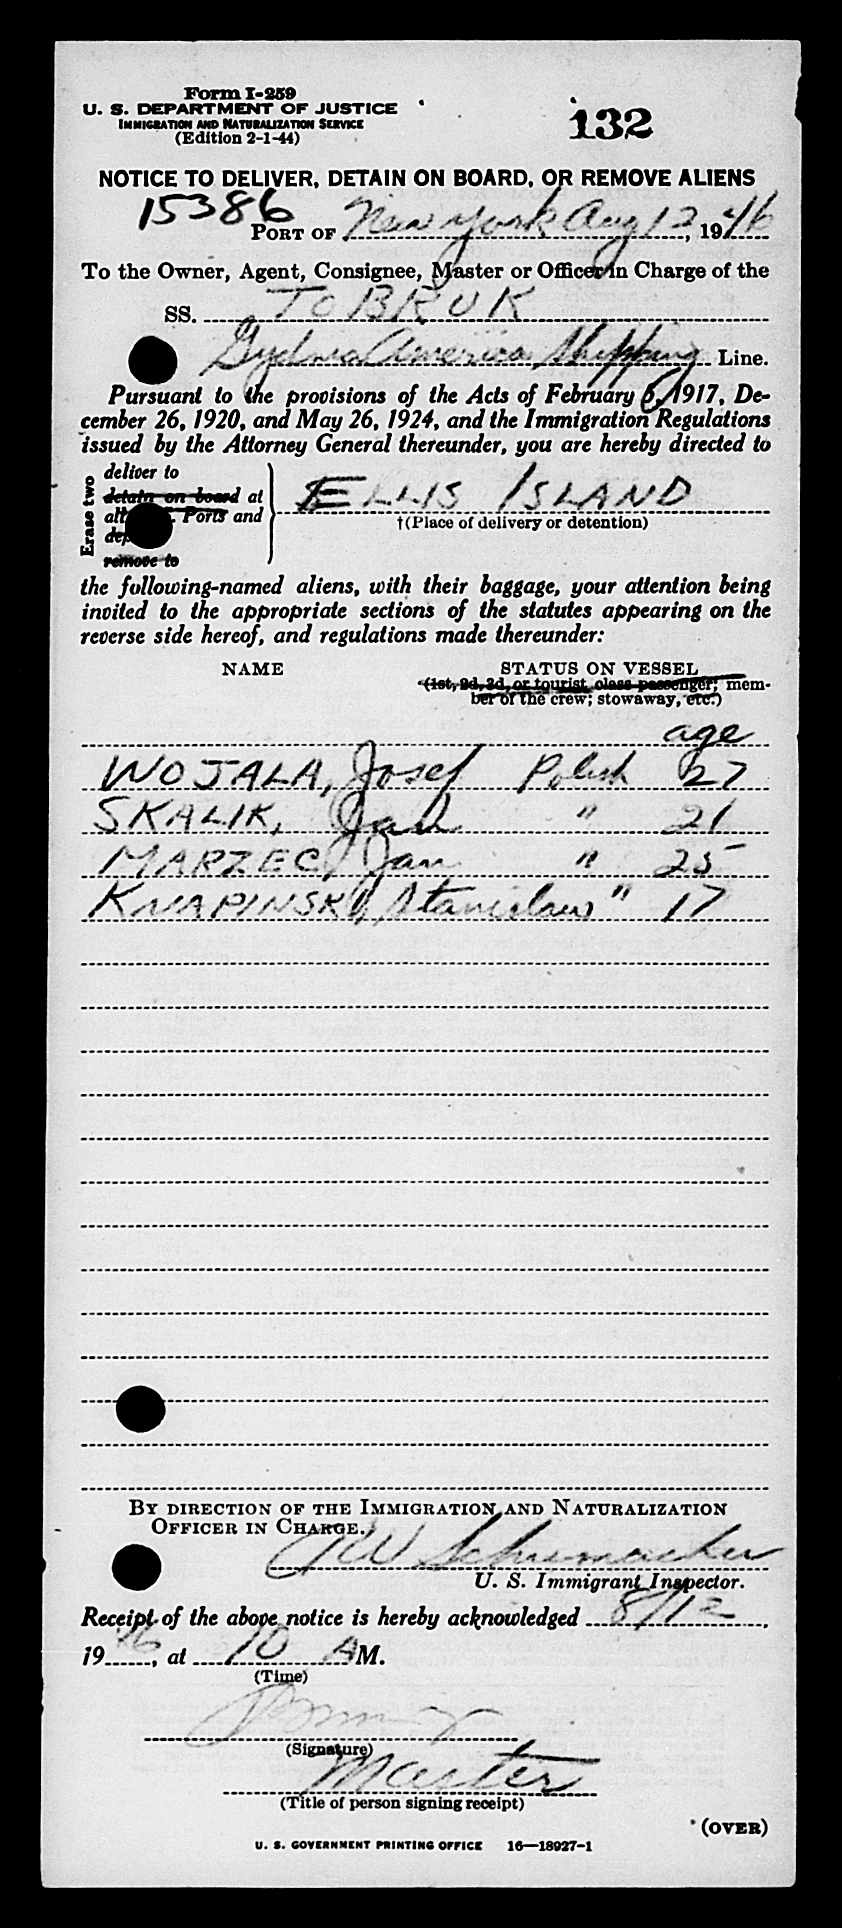 Form I-259
U. S. DEPARTMENT OF JUSTICE
IMMIGRATION AND NATURALIZATION SERVICE
(Edition 2-1-44)
132
NOTICE TO DELIVER, DETAIN ON BOARD, OR REMOVE ALIENS
15386
PORT OF New York Aug 12, 1946
To the Owner, Agent, Consignee, Master or Officer in Charge of the
SS. TOBRUK
Gydnia America Shipping Line.
Pursuant to the provisions of the Acts of February 5, 1917, De-
cember 26, 1920, and May 26, 1924, and the Immigration Regulations
issued by the Attorney General thereunder, you are hereby directed to
Erase two
deliver to
detain on board at
all Ports and
remove to
ELLIS ISLAND
†(Place of delivery or detention)
the following-named aliens, with their baggage, your attention being
invited to the appropriate sections of the statutes appearing on the
reverse side hereof, and regulations made thereunder:
NAME STATUS ON VESSEL
(1st, 2d, 3d, or tourist class passenger; mem-
ber of the crew; stowaway, etc.)
age
WOJALA, Josef Polish 27
SKALIK, Jan " 21
MARZEC, Jan " 25
KNAPINSKI, Stanislaw " 17
BY DIRECTION OF THE IMMIGRATION AND NATURALIZATION
OFFICER IN CHARGE.
Schumacker
U. S. Immigrant Inspector.
Receipt of the above notice is hereby acknowledged 8/12,
1946, at 10 AM.
(Time)
(Signature)
Master
(Title of person signing receipt)
(OVER)
U. S. GOVERNMENT PRINTING OFFICE 16—18927-1